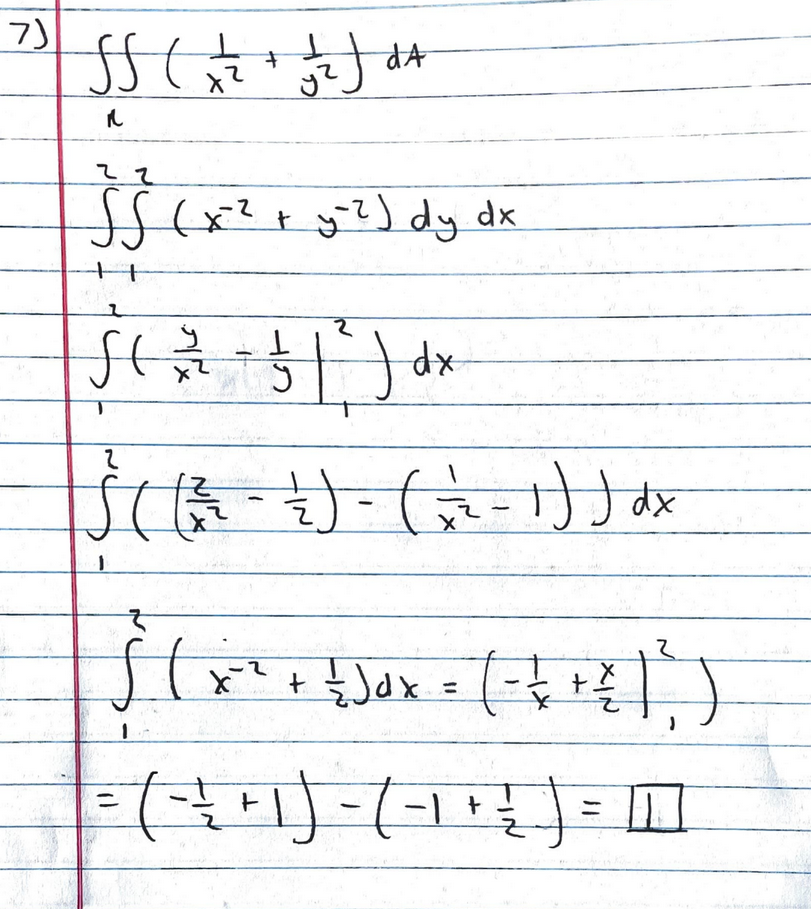 7) ∬_R ( 1/x² + 1/y² ) dA
∫₁² ∫₁² ( x⁻² + y⁻² ) dy dx
∫₁² ( y/x² - 1/y |₁² ) dx
∫₁² ( ( 2/x² - 1/2 ) - ( 1/x² - 1 ) ) dx
∫₁² ( x⁻² + 1/2 ) dx = ( -1/x + x/2 |₁² )
= ( -1/2 + 1 ) - ( -1 + 1/2 ) = 1